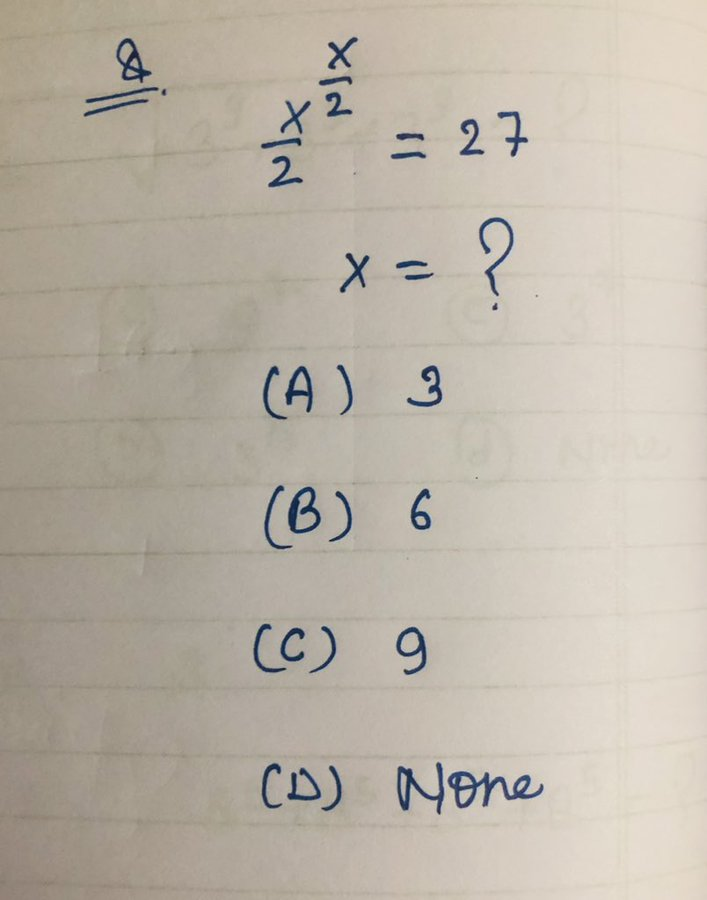 Q.
x/2^(x/2) = 27
x = ?
(A) 3
(B) 6
(C) 9
(D) None